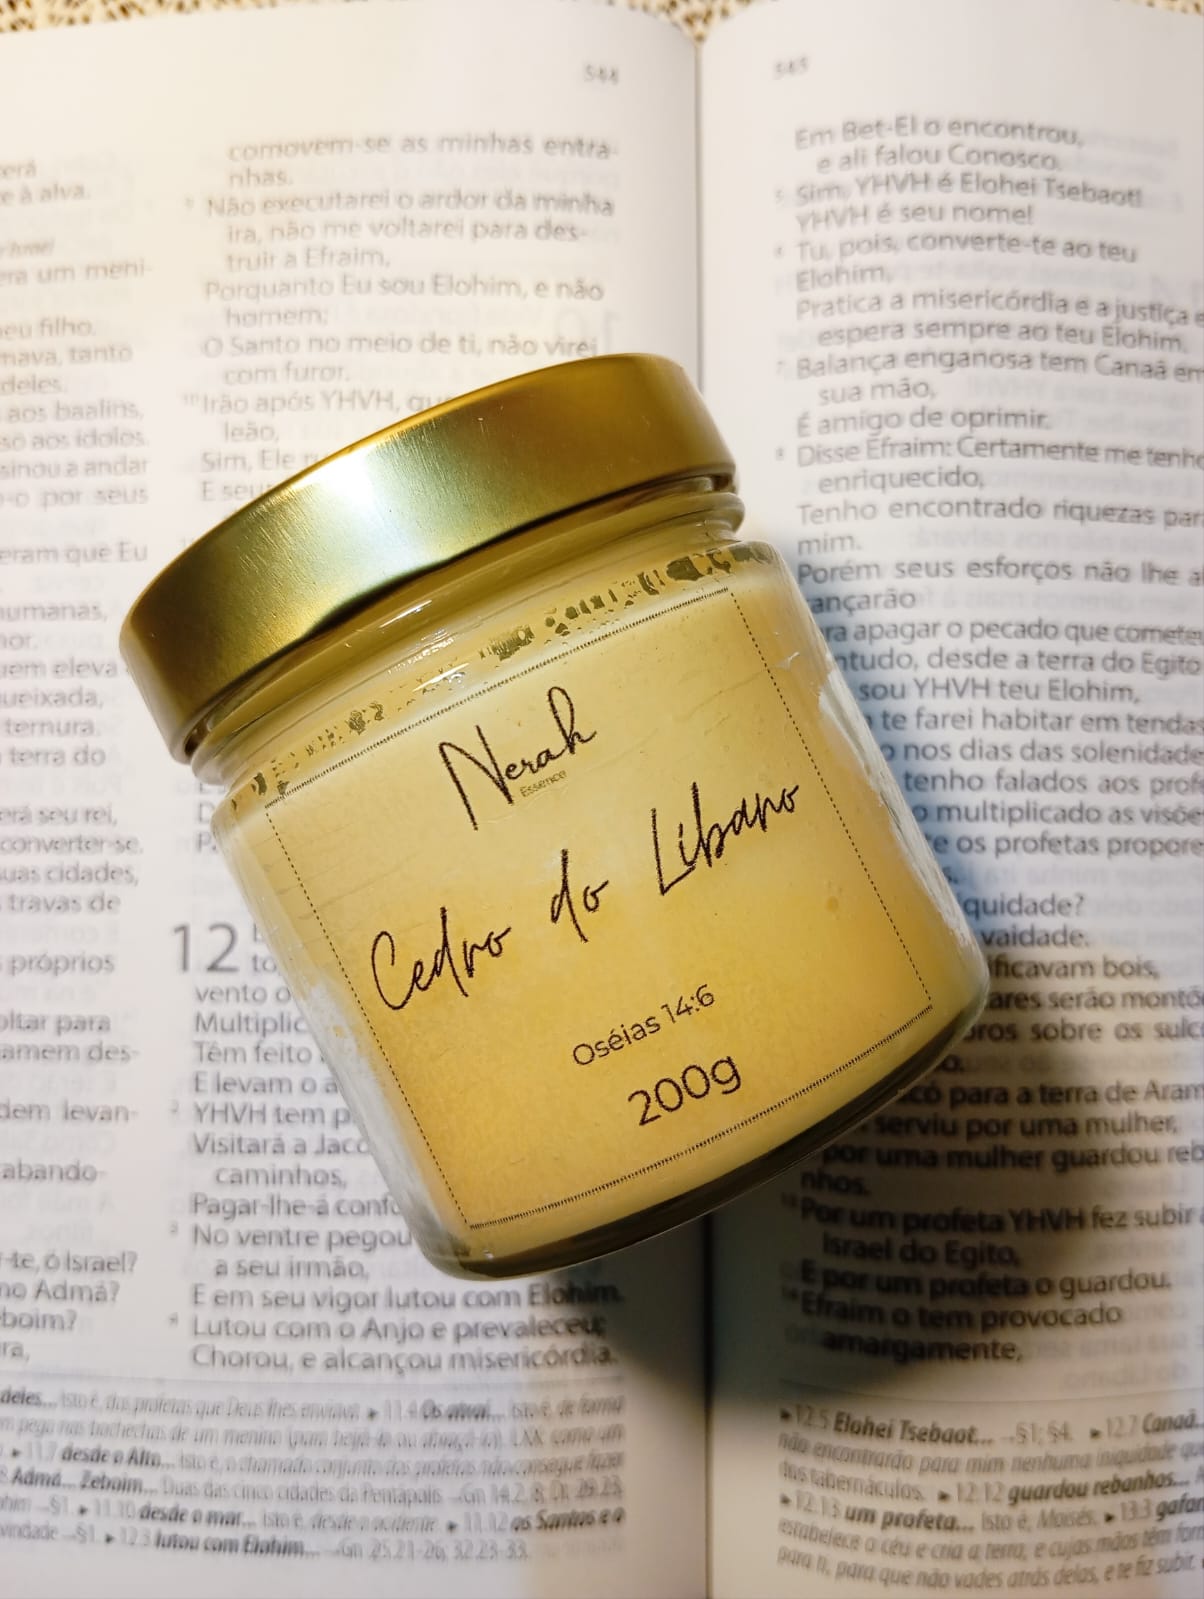 544
erá
e à alva.
era um meni-
eu filho.
mava, tanto
deles.
aos baalins,
so aos ídolos.
sinou a andar
o por seus
eram que Eu
humanas,
or.
uem eleva
queixada,
ternura.
terra do
erá seu rei,
converter-se.
suas cidades,
travas de
próprios
oltar para
amem des-
dem levan-
abando-
r-te, ó Israel?
mo Admá?
eboim?
ra,
comovem-se as minhas entra-
nhas.
9 Não executarei o ardor da minha
ira, não me voltarei para des-
truir a Efraim,
Porquanto Eu sou Elohim, e não
homem;
O Santo no meio de ti, não virei
com furor.
10 Irão após YHVH, qu
leão,
Sim, Ele ru
E seu
Nerah
Essence
Cedro do Líbano
Oséias 14:6
200g
12
vento o
Multiplic
Têm feito
E levam o a
2 YHVH tem p
Visitará a Jacó
caminhos,
Pagar-lhe-á confo
3 No ventre pegou
a seu irmão,
E em seu vigor lutou com Elohim.
4 Lutou com o Anjo e prevaleceu;
Chorou, e alcançou misericórdia.
deles... Isto é, dos profetas que Deus lhes enviava. ▸ 11.4 Os atraí... Isto é, de forma
▸ 11.7 desde o Alto... Isto é, o chamado conjunto dos profetas não consegue fazer
Admá... Zeboim... Duas das cinco cidades da Pentápolis →Gn 14.2, 8; Dt 29.23.
→§1. ▸ 11.10 desde o mar... Isto é, desde o ocidente. ▸ 11.12 os Santos e o
vindade →§1. ▸ 12.3 lutou com Elohim... →Gn 25.21-26; 32.23-33.
545
Em Bet-El o encontrou,
e ali falou Conosco.
5 Sim, YHVH é Elohei Tsebaot!
YHVH é seu nome!
6 Tu, pois, converte-te ao teu
Elohim,
Pratica a misericórdia e a justiça e
espera sempre ao teu Elohim.
7 Balança enganosa tem Canaã em
sua mão,
É amigo de oprimir.
8 Disse Efraim: Certamente me tenho
enriquecido,
Tenho encontrado riquezas par
mim.
Porém seus esforços não lhe al
ançarão
ra apagar o pecado que comete
ntudo, desde a terra do Egito
sou YHVH teu Elohim,
te farei habitar em tendas
o nos dias das solenidade
tenho falados aos profe
o multiplicado as visões
e os profetas propore
s.
iquidade?
vaidade.
ificavam bois,
ares serão montõ
oros sobre os sulc
o.
có para a terra de Aram
serviu por uma mulher,
por uma mulher guardou reb
nhos.
13 Por um profeta YHVH fez subir a
Israel do Egito,
E por um profeta o guardou.
14 Efraim o tem provocado
amargamente,
▸12.5 Elohei Tsebaot... →§1; §4. ▸12.7 Canaã...
não encontrarão para mim nenhuma iniquidade qu
dos tabernáculos. ▸ 12.12 guardou rebanhos...
▸ 12.13 um profeta... Isto é, Moisés. ▸ 13.3 gafan
estabelece o céu e cria a terra, e cujas mãos têm for
para ti, para que não vades atrás delas, e te fiz subir.